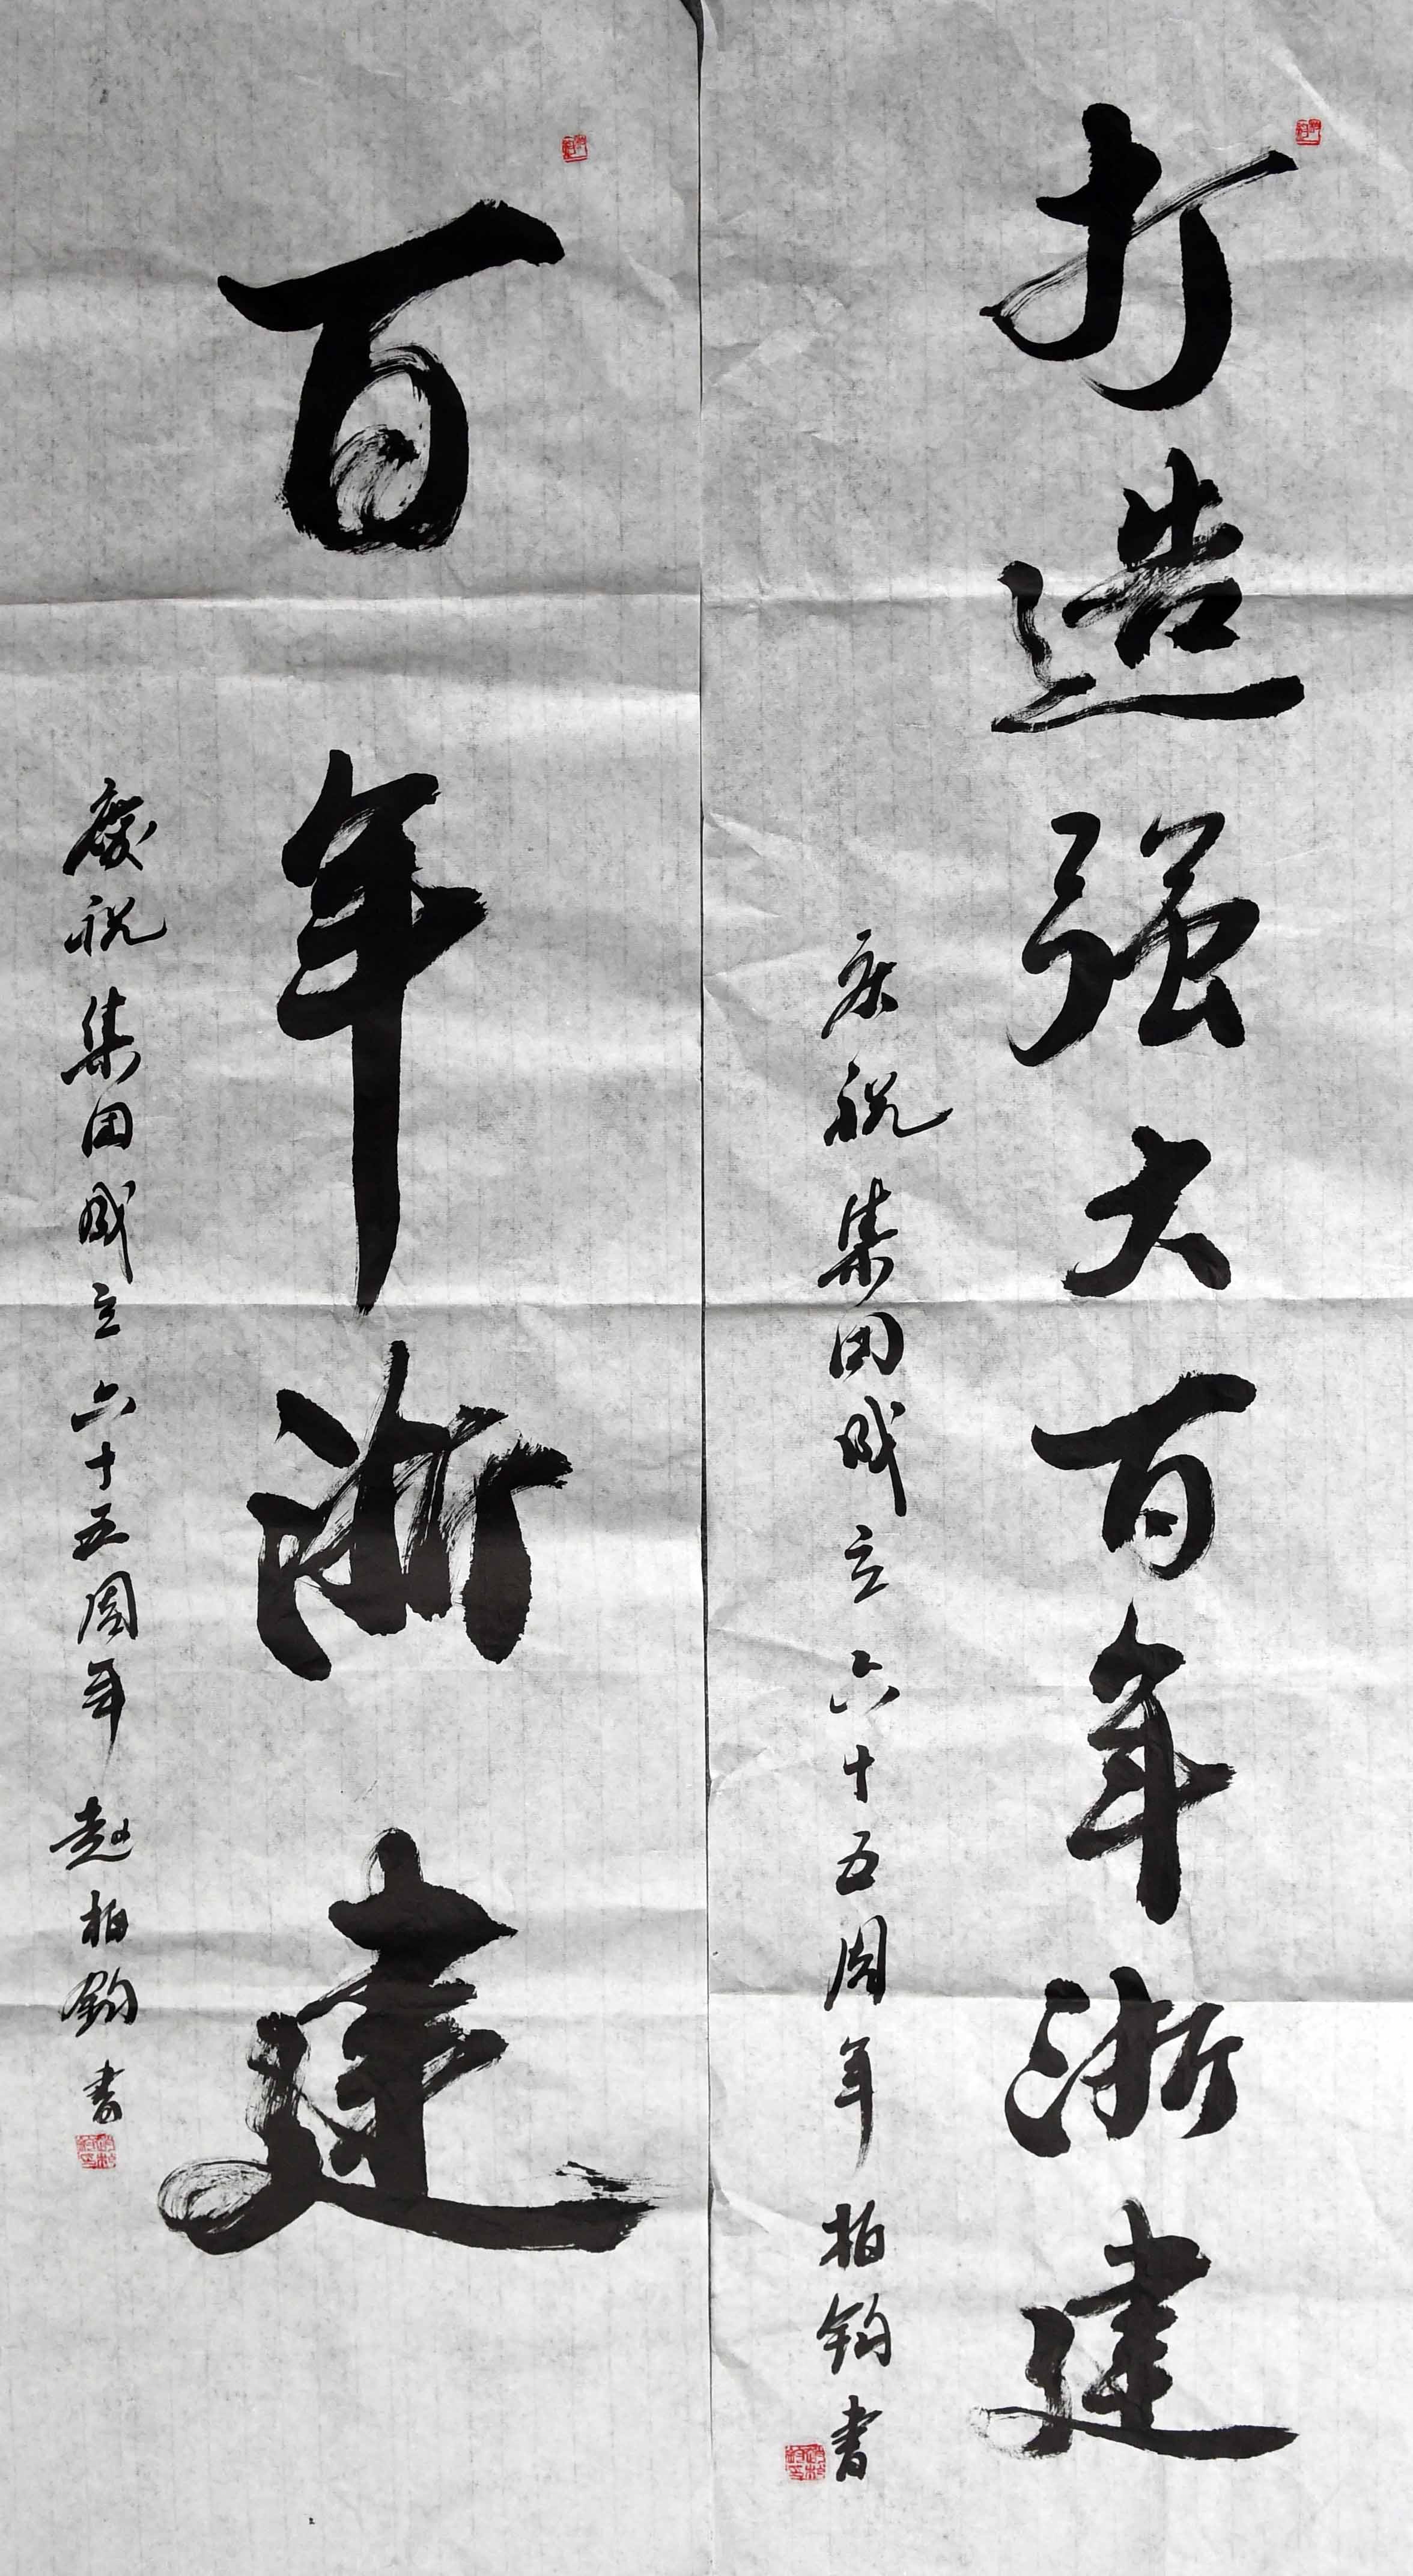 打造强大百年浙建
庆祝集团成立六十五周年 柏钧书
百年浙建
慶祝集团成立六十五周年 赵柏钧书